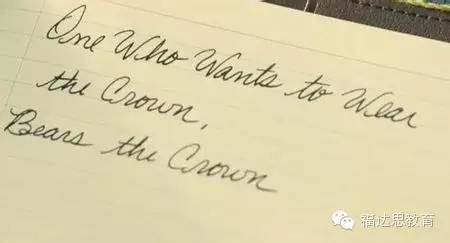 One Who Wants to Wear
the Crown,
Bears the Crown
福达思教育